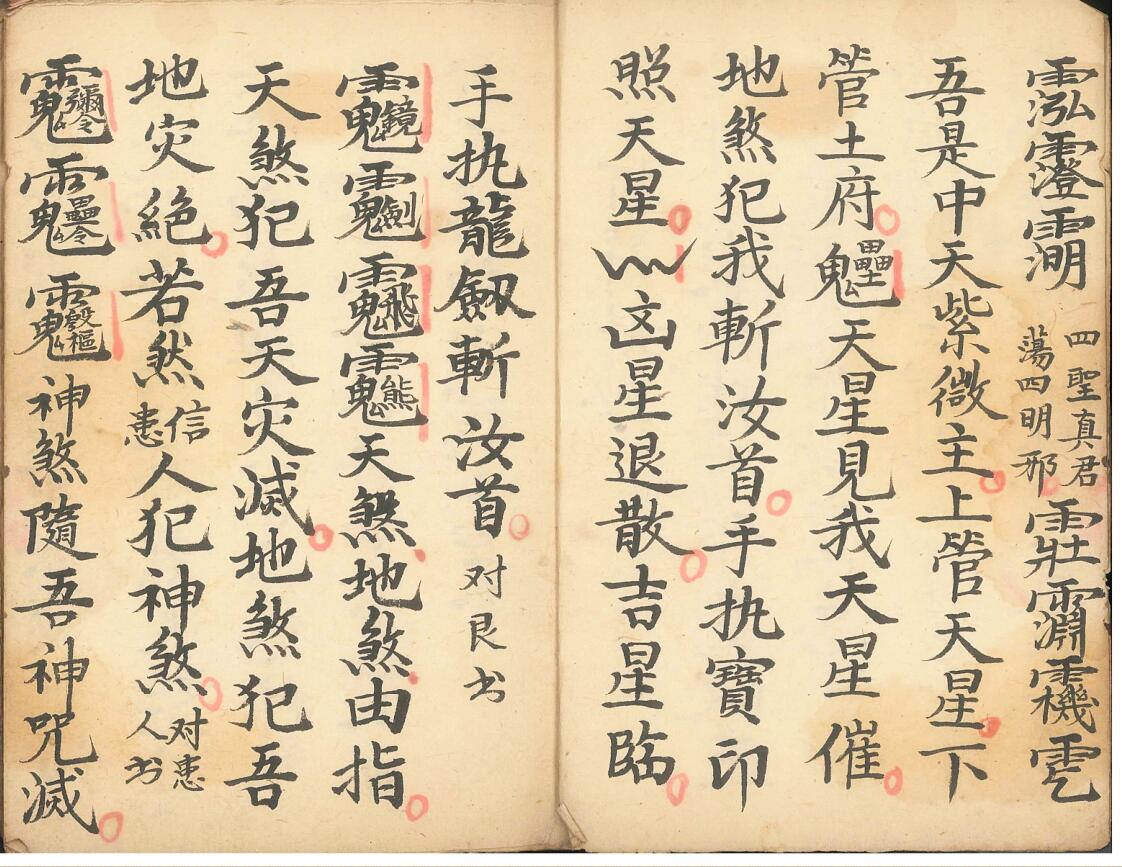 四聖真君
蕩四明邪
吾是中天紫微主上管天星下
管土府天星見我天星催
地煞犯我斬汝首手执寶印
照天星凶星退散吉星临
手执龍劔斬汝首对艮书
天煞地煞由指
天煞犯吾天灾滅地煞犯吾
地灾絕若然信患人犯神煞对患人书
神煞隨吾神咒滅